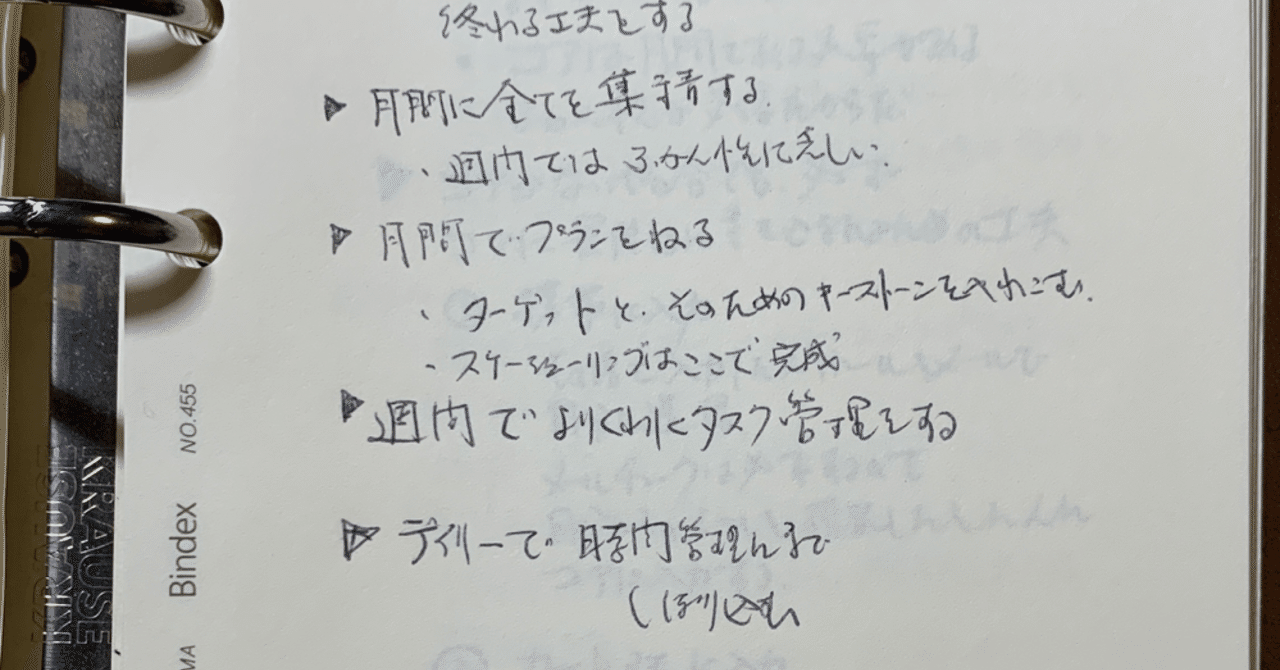 終わる工夫とする
▶ 月間に全てを集積する.
・週間では ふかん性に乏しい.
▶ 月間で・プランをねる
・ターゲットと、そのためのキーストーンを入れこむ.
・スケジューリングはここで完成
▶ 週間で よりくわしくタスク管理をする
▶ デイリーで 時間管理まで
しぼり込む
NO.455
Bindex
KRAUSE
KRAUSE